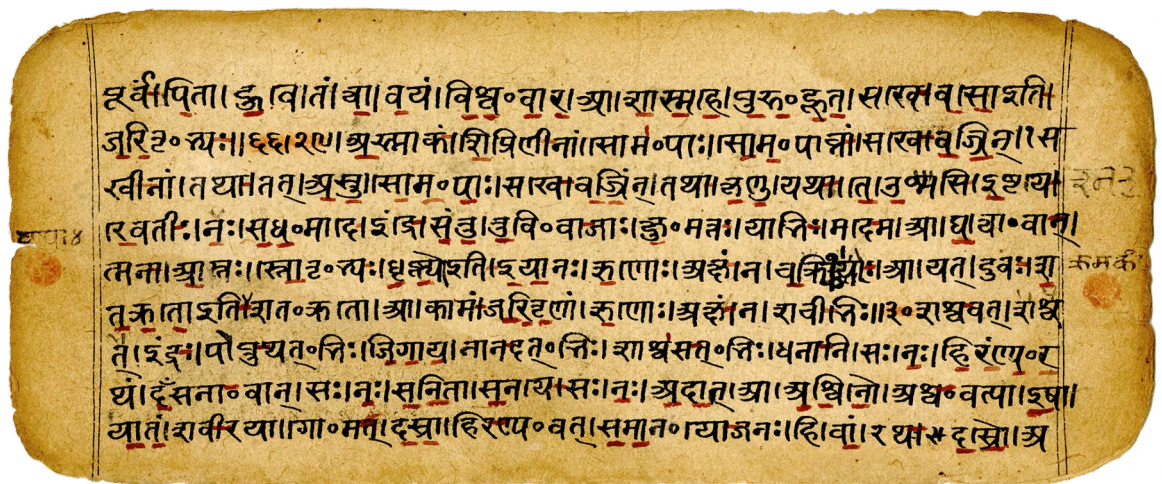 पूर्वं।पिता।हुवे।तं।त्वा।वयं।विश्व॰वार।आ।शास्महे।पुरु॰हूत।सखे।वसो इति।
जरितृ॰भ्यः॥६६।२९।अस्माकं।शिप्रिणीनां।सोम॰पाः।सोम॰पाव्नां।सखे।वज्रिन्।स
खीनां।तथा।तत्।अस्तु।सोम॰पाः।सखे।वज्रिन्।तथा।कृणु।यथा।ते।उश्मसि।इष्टये।
रेवतीः।नः।सध॰मादे।इंद्रे।संतु।तुवि॰वाजाः।क्षु॰मंतः।याभिः।मदेम।आ।घ।त्वा॰वान्।
त्मना।आप्तः।स्तोतृ॰भ्यः।धृष्णो इति।इयानः।ऋणोः।अक्षं।न।चक्र्योः।आ।यत्।दुवः।श
तक्रतो इति शत॰क्रतो।आ।कामं।जरितॄणां।ऋणोः।अक्षं।न।शचीभिः॥३०
त्।इंद्रः।पोप्रुथत्॰भिः।जिगाय।नानदत्॰भिः।शाश्वसत्॰भिः।धनानि।सः।नः।हिरण्य॰र
थं।दंसना॰वान्।सः।नः।सनिता।सनये।सः।नः।अदात्।आ।अश्विनौ।अश्व॰वत्या।इषा।
यातं।शवीरया।गो॰मत्।दस्रा।हिरण्य॰वत्।समान॰योजनः।हि।वां।रथः।दस्रौ।अ